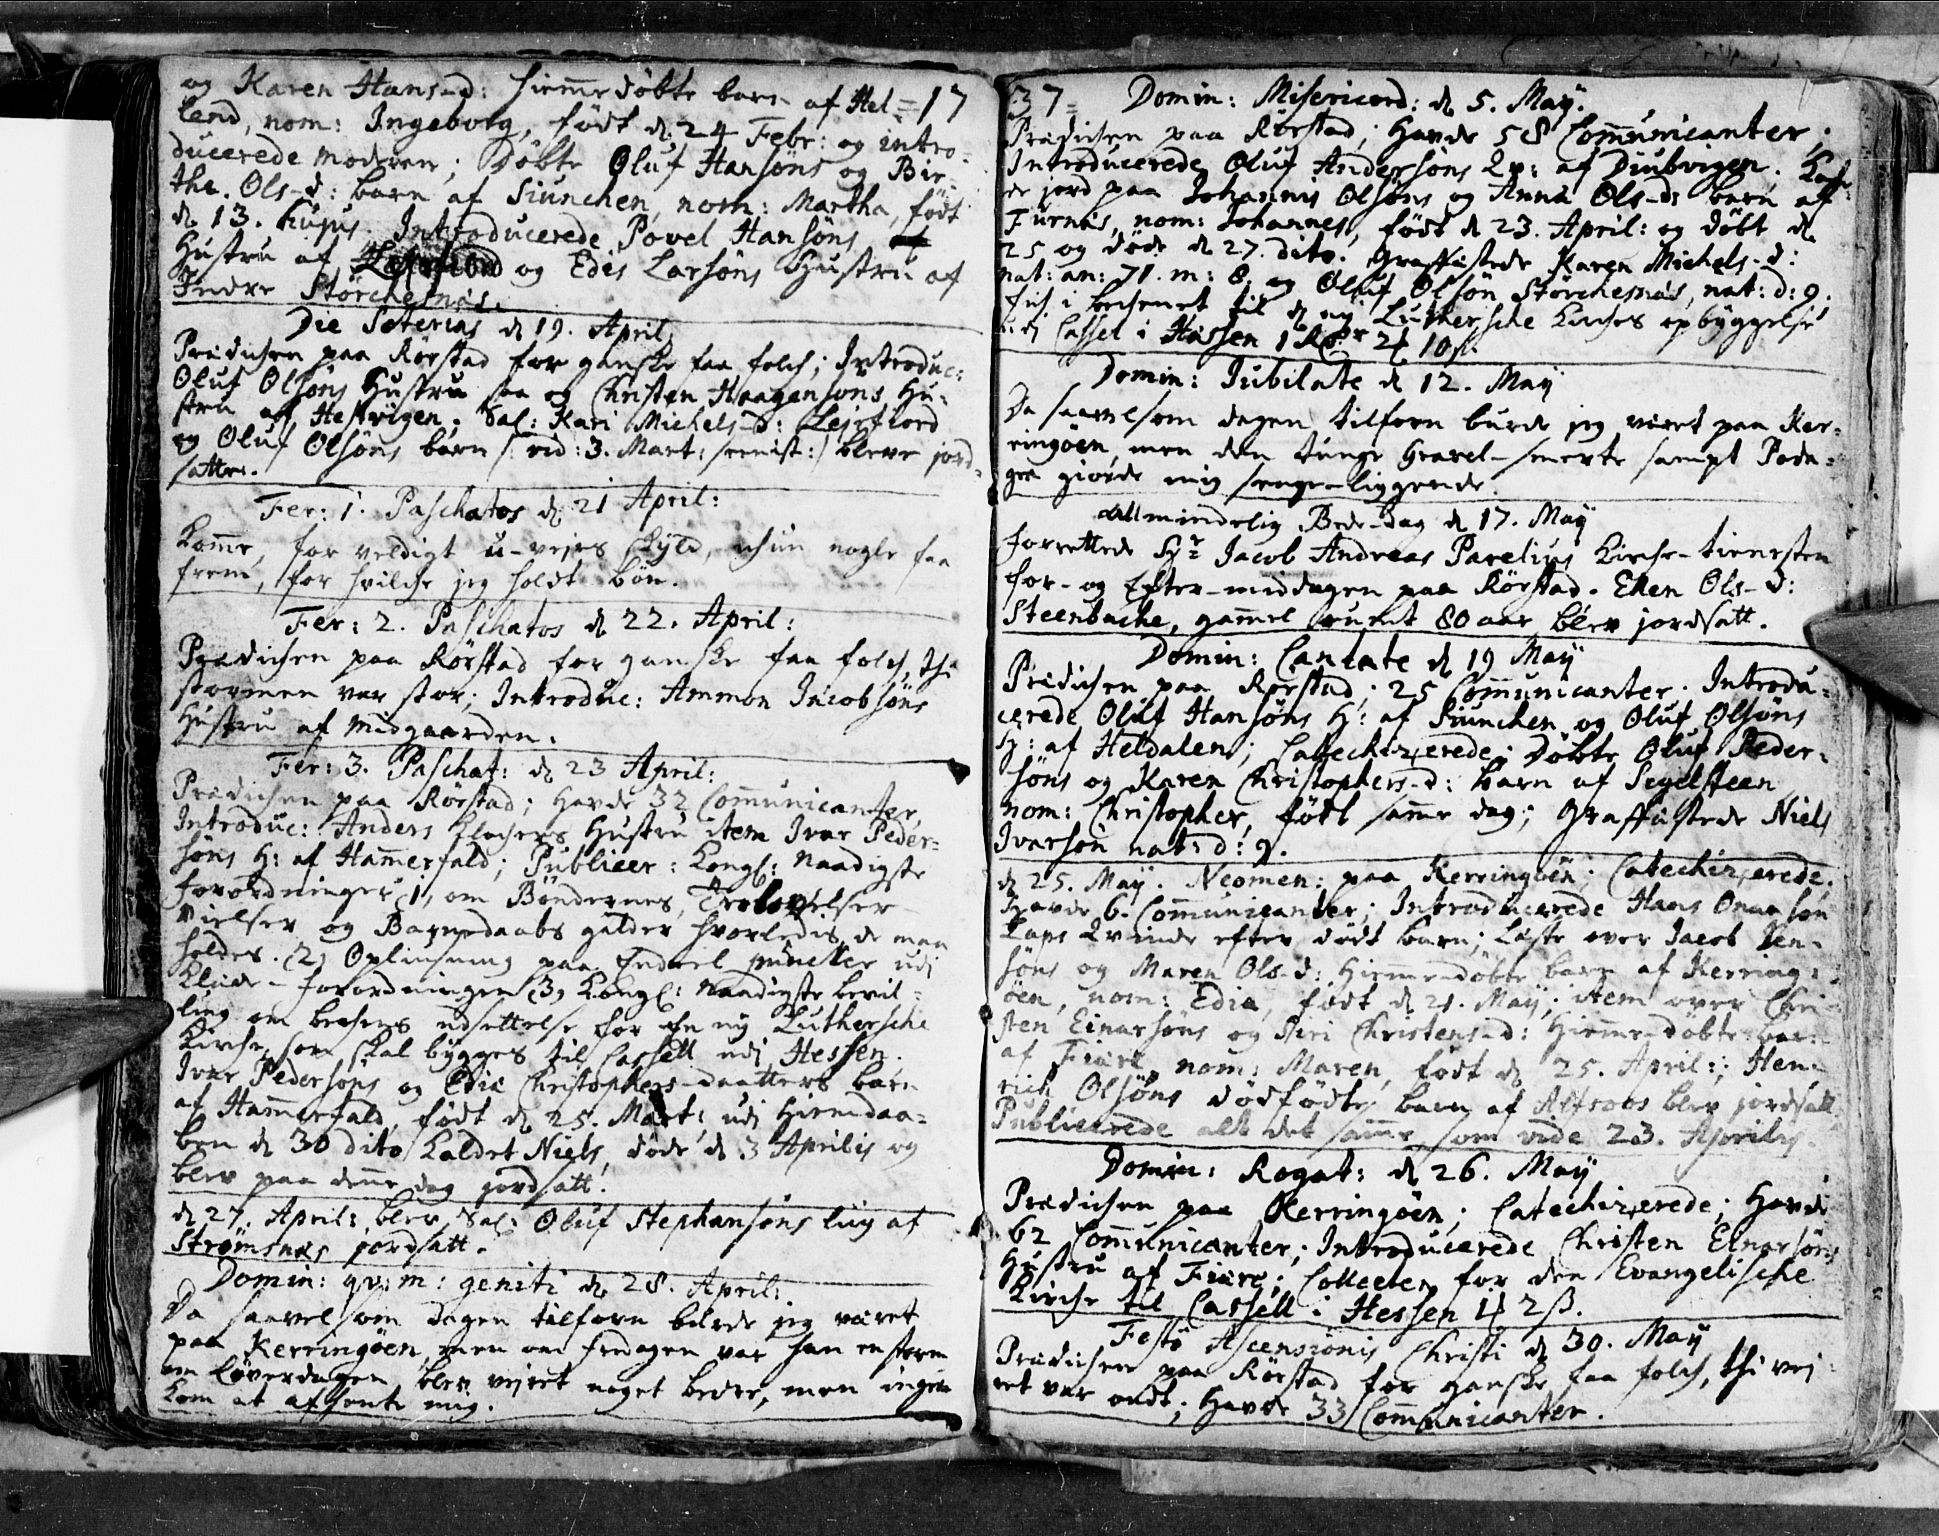 og Karen Hans-d: hiemedøbte barn af Hel = 17
land, nom: Ingeborg, født d. 24 Febr: og intro-
ducerede moderen; Døbte Oluf Hansøns og Bir-
the Ols-d: barn af Siunchen, nom: Martha, født
d. 13. hujus. Introducerede Povel Hansøns
Hustru af og Edis Larsøns Hustru af
Indre Størchesnæs.
Die Soterias d. 19. April
Prædichen paa Rørstad for ganske faa folch; Introduc:
Oluf Olsøns Hustru saa og Christen Haagensøns Hu-
stru af Hestvigen. Sal: Kari Michels-d: Lejrfiord
og Oluf Olsøns barn /: vid: 3. Mart: :/ bleve jord-
satte.
Fer: 1. Paschatos d. 21 April:
Komme, for veldigt u-vejrs skyld, ichun nogle faa
frem, for hvilche jeg holdt bøn.
Fer: 2. Paschatos d. 22. April:
Prædichen paa Rørstad for ganske faa folch, thi
stormen var stor; Introduc: Ammon Jacobsøns
Hustru af Midgaarden.
Fer: 3. Paschat: d. 23 April:
Prædichen paa Rørstad; Havde 32 Communicanter,
Introduc: Anders Klochers Hustru item Ivar Peder-
søns H: af Hamerfald; Publicer: Kongl: Naadigste
forordninger 1, om Bøndernes, Trolovelser
Vielser og Barnedaabs gilder hvorledis de maa
holdes. (2) Oplysning paa Endeel puncter udi
Klæde-forordningen (3, Kongl: Naadigste bevil-
ling om bechens udsettelse for En ny Luthersche
Kirche, som skal bygges til Cassell udi Hessen.
Ivar Pedersøns og Edis Christophers-daatters barn
af Hammerfald, født d. 25. Mart: udi Hiemdaa-
ben d. 30 dito kaldet Niels, døde d. 3 Aprilis og
blev paa denne dag jordsatt.
d. 27. April: blev Sal: Oluf Stephansøns liig af
Strømsnæs jordsatt.
Domin: qv: m: geniti d. 28. April:
Da saavelsom dagen tilforn burde jeg været
paa Kerringøen, men om fredagen var han en storm
om løverdagen blev vejret noget bedre, men ingen
kom at afhente mig.
37 = Domin: Misericord: d. 5. May.
Prædichen paa Rørstad; Havde 58 Communicanter;
Introducerede Oluf Andersøns Qv: af Diubvigen. Kaste-
de jord paa Johannis Olsøns og Anna Ols-d: barn af
Furnæs, nom: Johannes, født d. 23. April: og døbt d.
25 og døde d. 27. dito. Graffæstede Karen Michels-d:
nat: an: 71. m: 8. og Oluf Olsøn Størchesnæs, nat: d: 9.
i bechenet til d. ny Luthersche Kirches opbyggelse
udi Cassel i Hassen 1 Rdr 2 10 ß.
Domin: Jubilate d. 12. May
Da saavelsom dagen tilforn burde jeg været paa Ker-
ringøen, men den tunge Gravel-smerte sampt Poda-
gra giorde mig senge-liggende.
Allmindelig Bede-dag d. 17. May
forrettede Hr Jacob Andreas Parelius Kirche-tienesten
for- og Efter-middagen paa Rørstad. Ellen Ols-d:
Steenbache, gammel rundt 80 aar blev jordsatt.
Domin: Cantate d. 19 May
Prædichen paa Rørstad; 25 Communicanter. Introdu-
cerede Oluf Hansøns H: af Siunchen og Oluf Olsøns
H: af Heldalen; Catechizerede; Døbte Oluf Peder-
søns og Karen Christophers-d: barn af Segelsteen
nom: Christopher, født samme dag; Graffæstede Niels
Ivarsøn nat: d: 9.
d. 25. May. Neomen: paa Kerringøen; Catechizerede.
Havde 6. Communicanter; Introducerede Hans Onansøn
Laps Qvinde efter dødt barn; Læste over Jacob Jen-
søns og Maren Ols-d: Hiemme-døbte barn af Kerring-
øen, nom: Edia, født d. 21. May; item over Chri-
sten Einarsøns og Siri Christens-d: Hiemme-døbte barn
af Fiære, nom: Maren, født d. 25. April:; Hen-
rich Olsøns dødfødte barn af Alfroos blev jordsatt
Publicerede alt det samme som vide 23. Aprilis.
Domin: Rogat: d. 26. May
Prædichen paa Kerringøen; Catechizerede; Havde
62 Communicanter; Introducerede Christen Einarsøns
Hustru af Fiære; Collecten for den Evangelische
Kirche til Cassell i Hessen 1 2 ß.
Festo Ascensionis Christi d. 30. May
Prædichen paa Rørstad for ganske faa folch, thi vej-
ret var ondt; Havde 33 Communicanter.